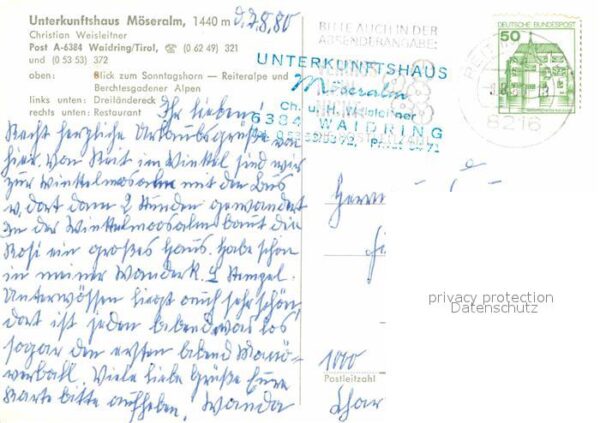 Unterkunftshaus Möseralm, 1440 m
d. 7.8.80
Christian Weisleitner
Post A-6384 Waidring/Tirol, ☎ (0 62 49) 321
und (0 53 53) 372
oben: Blick zum Sonntagshorn — Reiteralpe und
Berchtesgadener Alpen
links unten: Dreiländereck
rechts unten: Restaurant
Ihr lieben!
Recht herzliche Urlaubsgrüße von
hier. Von Reit im Winkel sind wir
zur Winkelmoosalm mit den Bus
u. dort dann 2 Stunden gewandert
In der Winkelmoosalm baut die
Rosi ein großes Haus. Habe schon
in meiner Wanderk. 2 Stempel.
Unterwössen liegt auch sehr schön,
dort ist jeden Abend was los
sogar den ersten Abend Manö-
verball. Viele liebe Grüße Eure
Karte bitte aufheben. Wanda
BITTE AUCH IN DER
ABSENDERANGABE:
UNTERKUNFTSHAUS
Möseralm
Ch. u. H. Weisleitner
6384 WAIDRING
50
DEUTSCHE BUNDESPOST
8216
Herrn
privacy protection
Datenschutz
1000
Postleitzahl